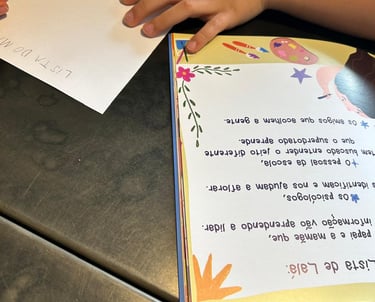 Lista de Lalá:
papai e a mamãe que,
informação vão aprendendo a lidar.
Os psicólogos,
identificam e nos ajudam a aflorar.
O pessoal da escola,
tem buscado entender o jeito diferente
que o superdotado aprende.
Os amigos que acolhem a gente.
LISTA DO M